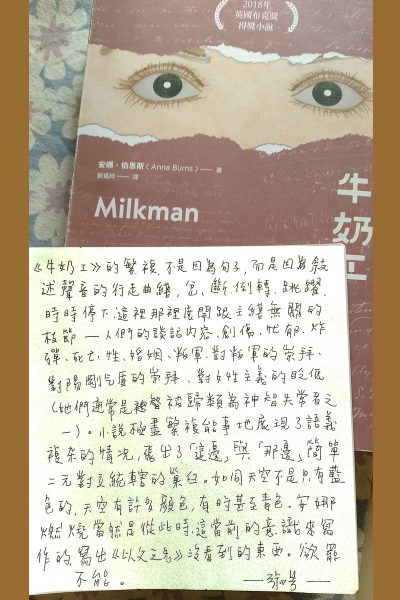 2018年
英國布克獎
得獎小說
安娜·伯恩斯(Anna Burns)——著
謝瑤玲——譯
Milkman
牛奶工
《牛奶工》的繁複,不是因為句子,而是因為敘
述聲音的行走曲線,岔、斷、倒轉、跳躍、
時時停下這裡那裡展開跟主綫無關的
枝節——人們的談話內容、創傷、忧郁、炸
彈、死亡、性、婚姻、叛軍、對叛軍的崇拜、
對陽剛气质的崇拜、對女性主義的贬低
(她們通常是被歸類為神智失常者之
一)。小說極盡繁複能事地展現了語義
複杂的情況,逃出了「這邊」與「那邊」簡單
二元對立統轄的窠臼。如同天空不是只有藍
色的,天空有許多顏色,有時甚至青色。安娜
當然是從此時這當前的意識來寫
作的,寫出《以父之名》沒看到的東西。欲罷
不能。